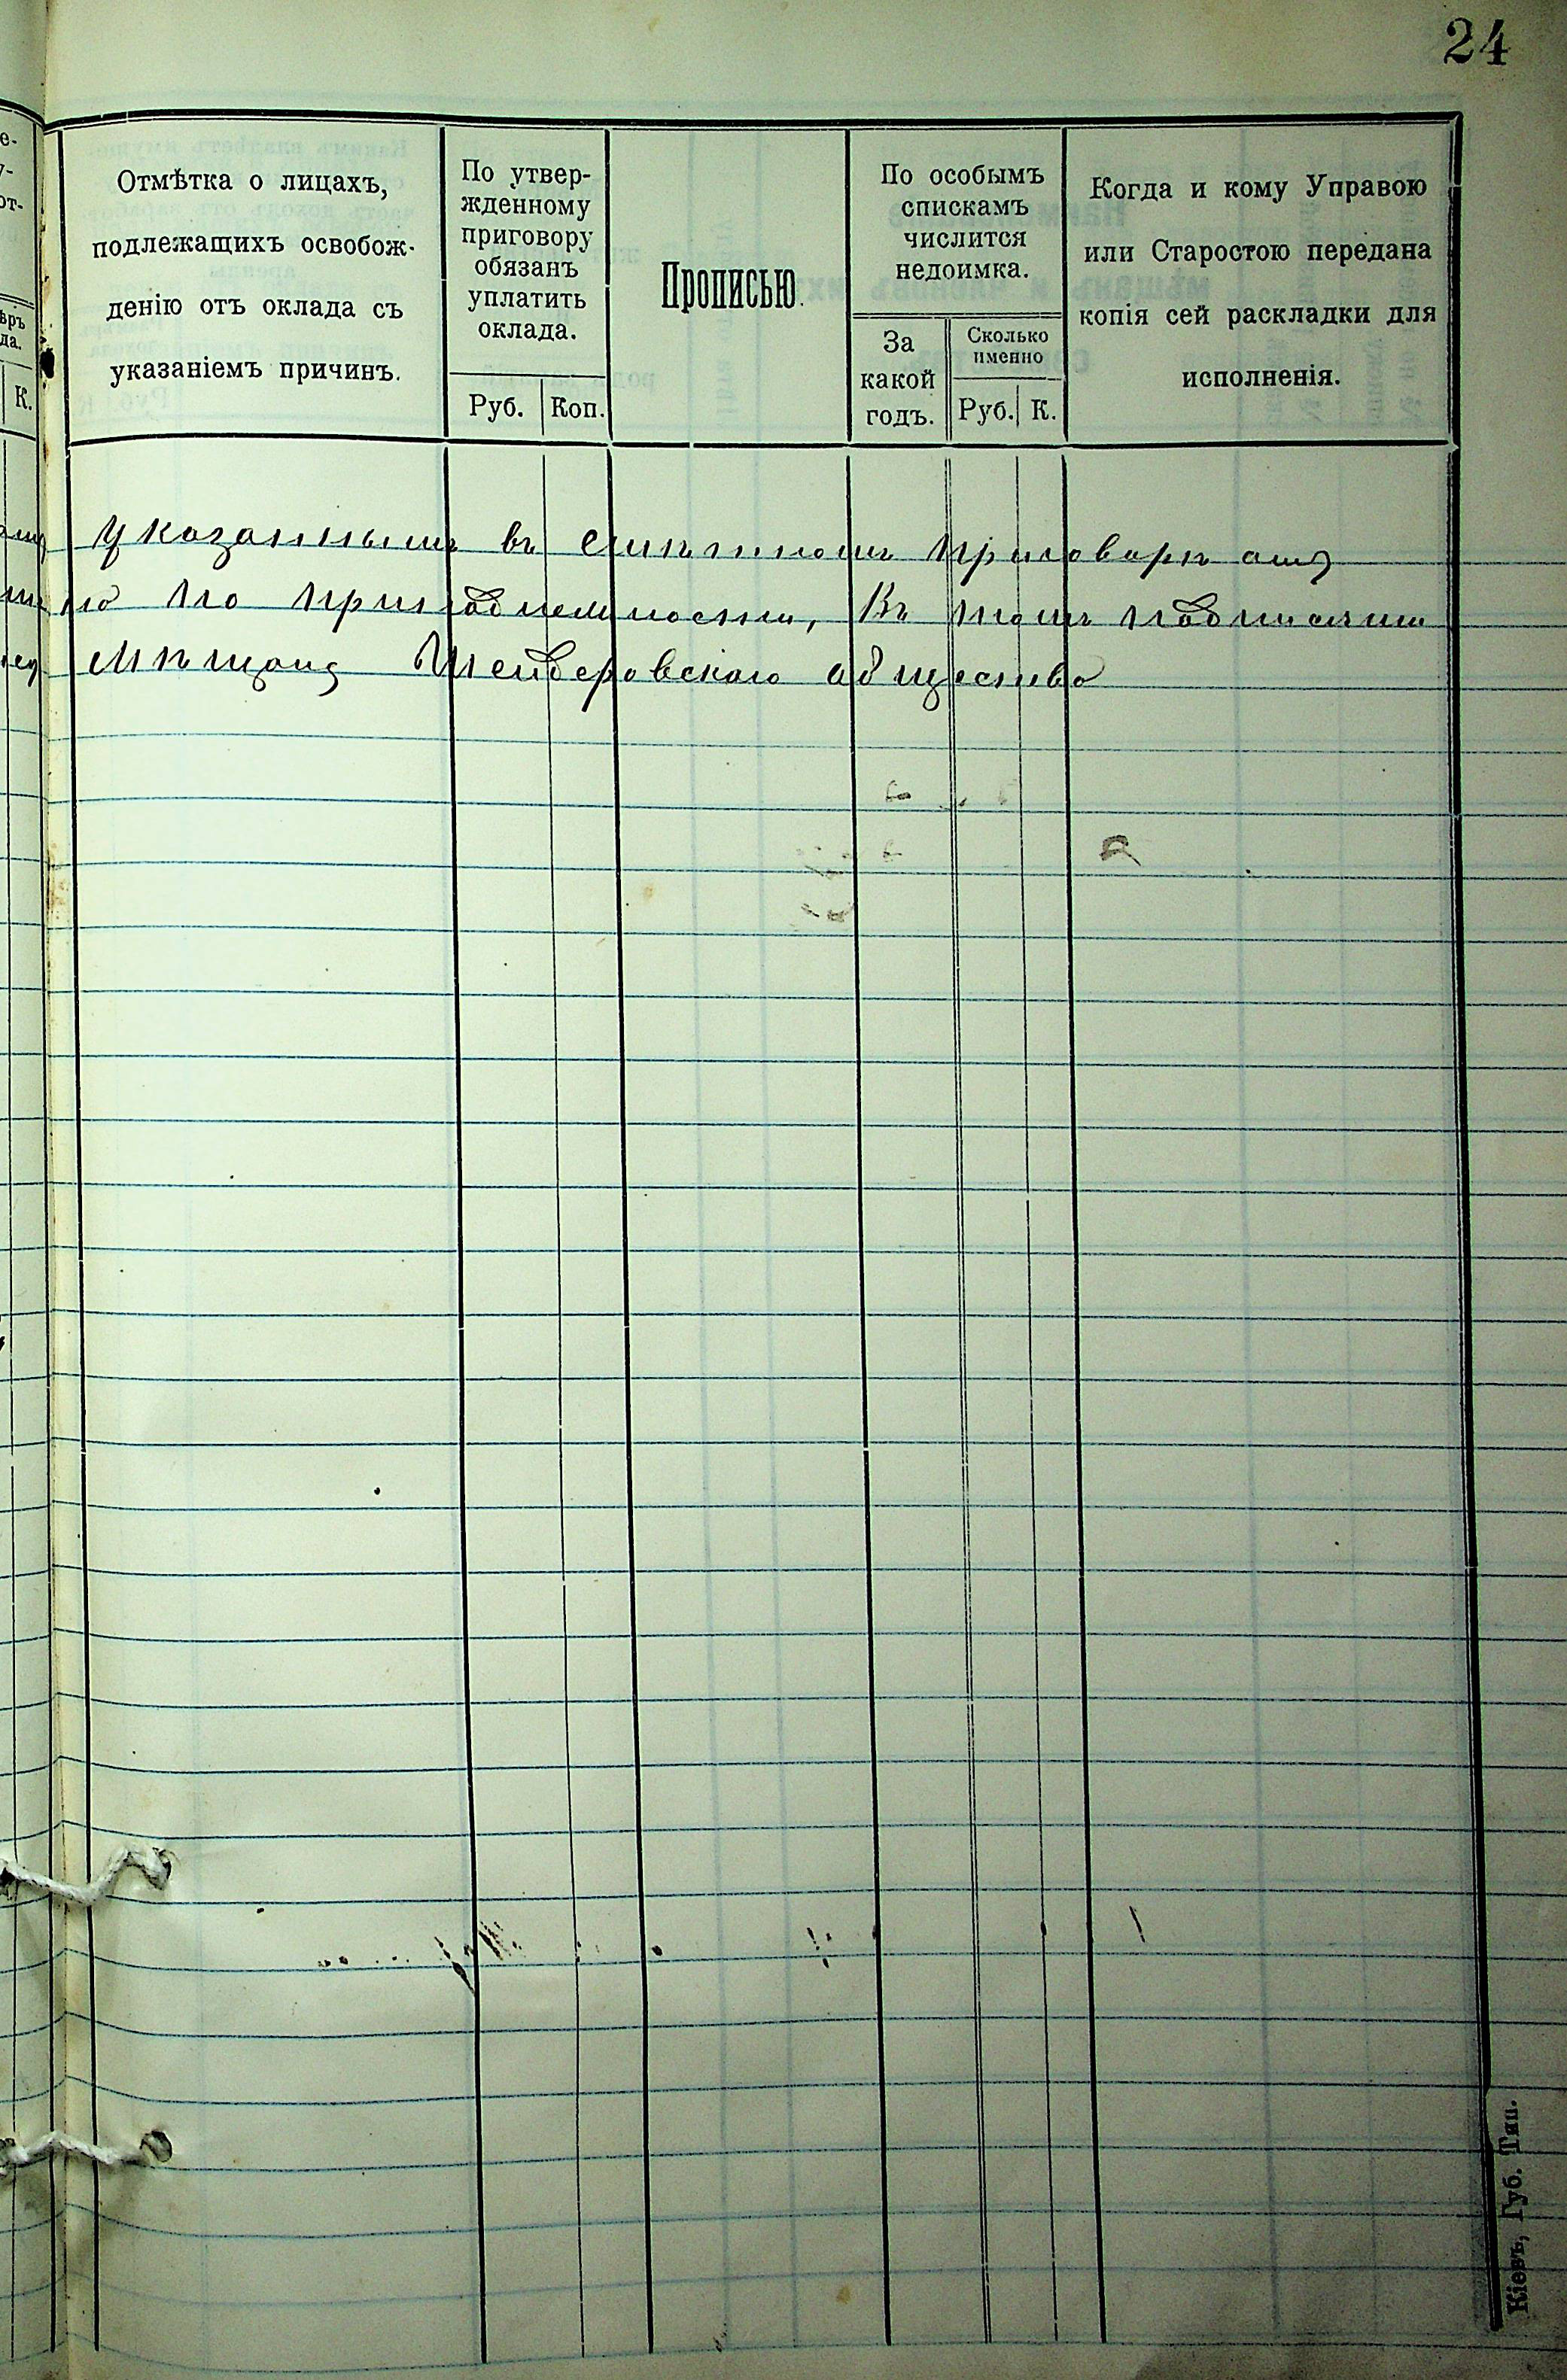 24
Отмѣтка о лицахъ,
подлежащихъ освобож-
денію отъ оклада съ
указаніемъ причинъ.
По утвер-
жденному
приговору
обязанъ
уплатить
оклада.
Руб. Коп.
Прописью.
По особымъ
спискамъ
числится
недоимка.
За
какой
годъ.
Сколько
именно
Руб. К.
Когда и кому Управою
или Старостою передана
копія сей раскладки для
исполненія.
указаннымъ въ приговорѣ
по Въ томъ
Мѣщане общества
Кіевъ, Губ. Тип.